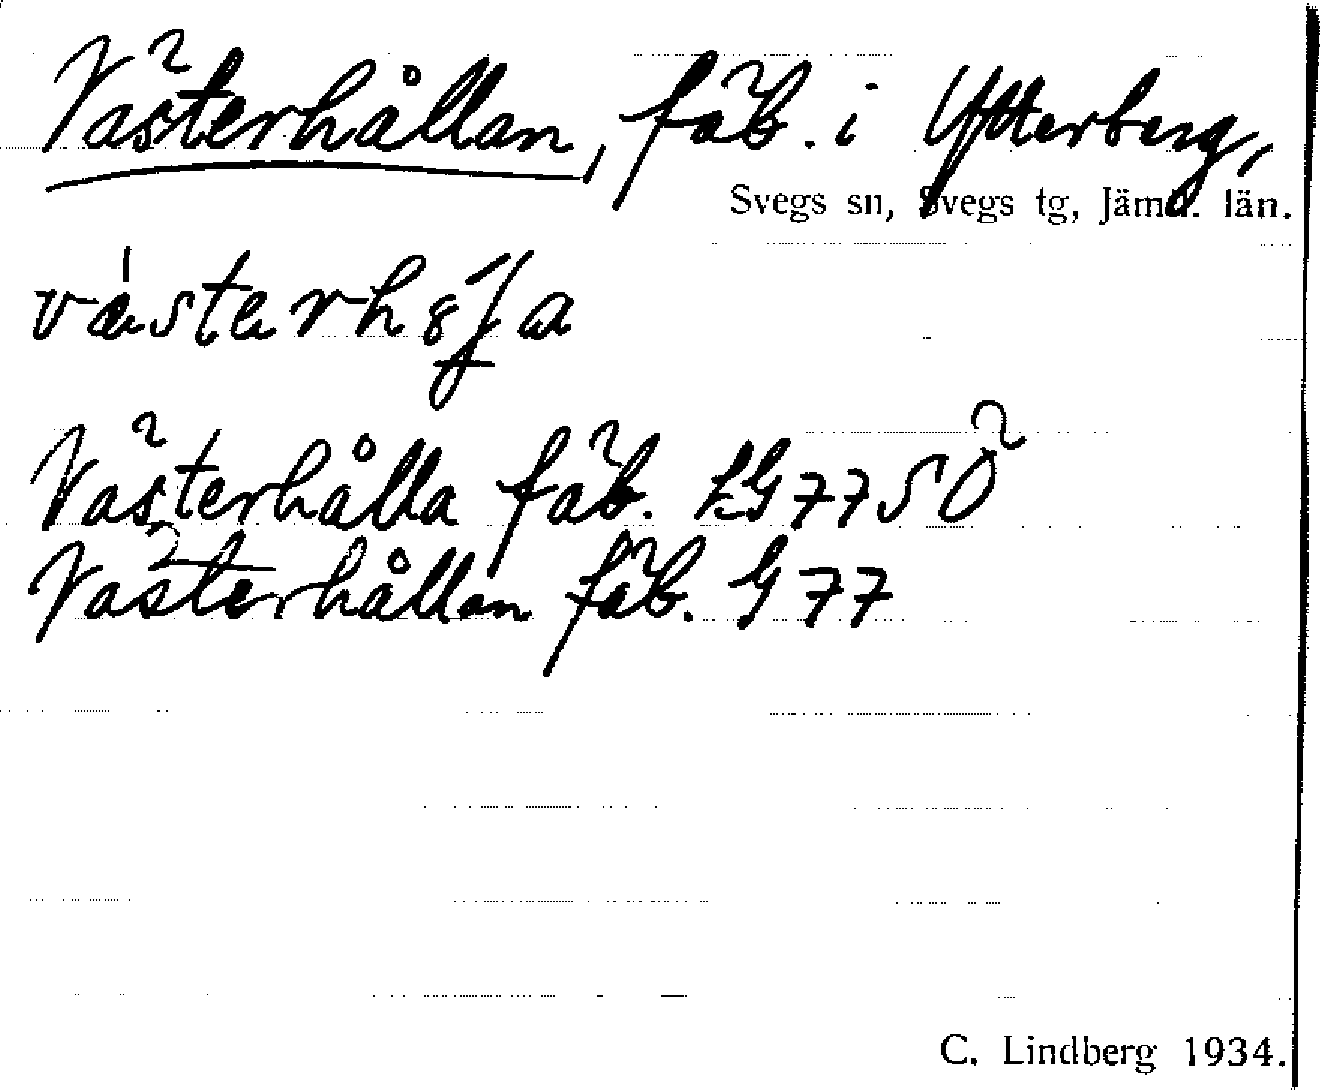 Västerhållan, fäb. i Ytterberg,
Svegs sn, Svegs tg, Jämtl. län.
Västerhålla fäb. EG 77 SÖ
Västerhållan fäb. G 77
C. Lindberg 1934.